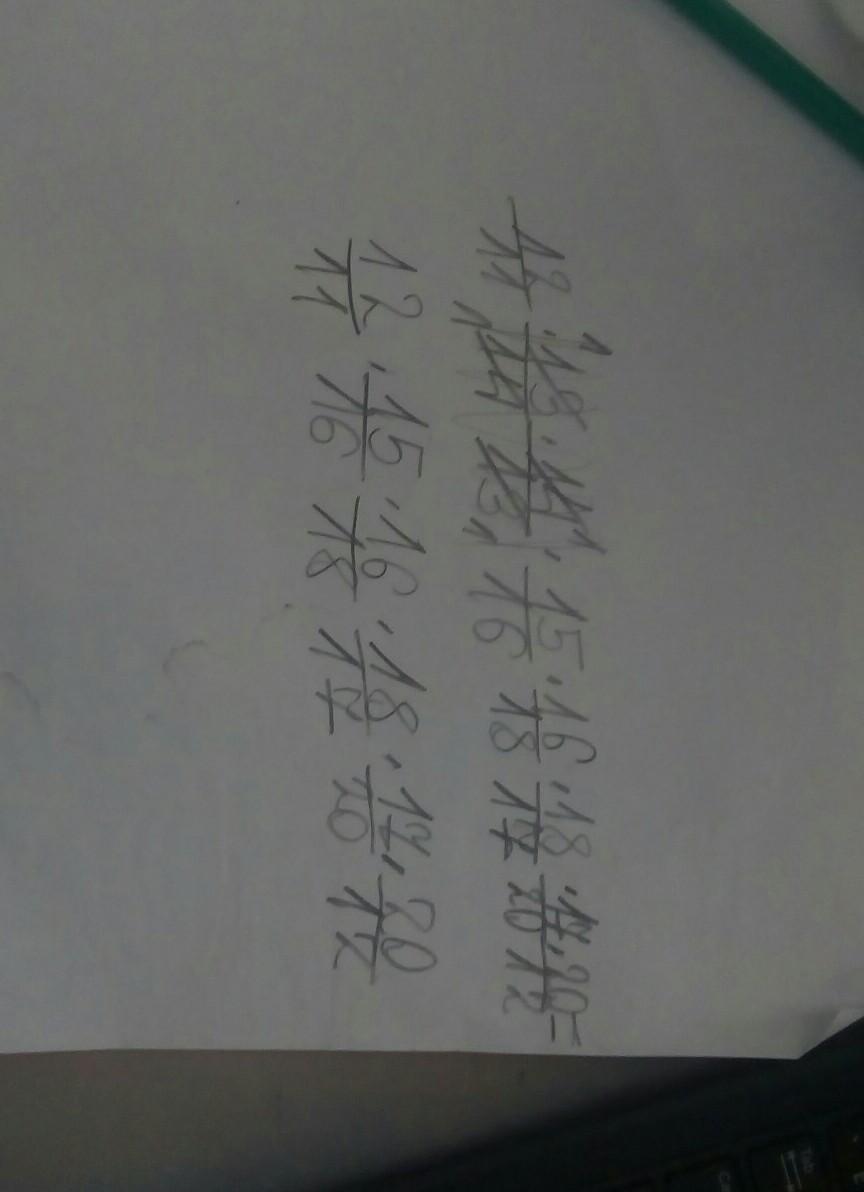 12/11 · 13/14 · 14/13 · 15/16 · 16/18 · 18/17 · 17/20 · 20/12 =
12/11 · 15/16 · 16/18 · 18/17 · 17/20 · 20/12